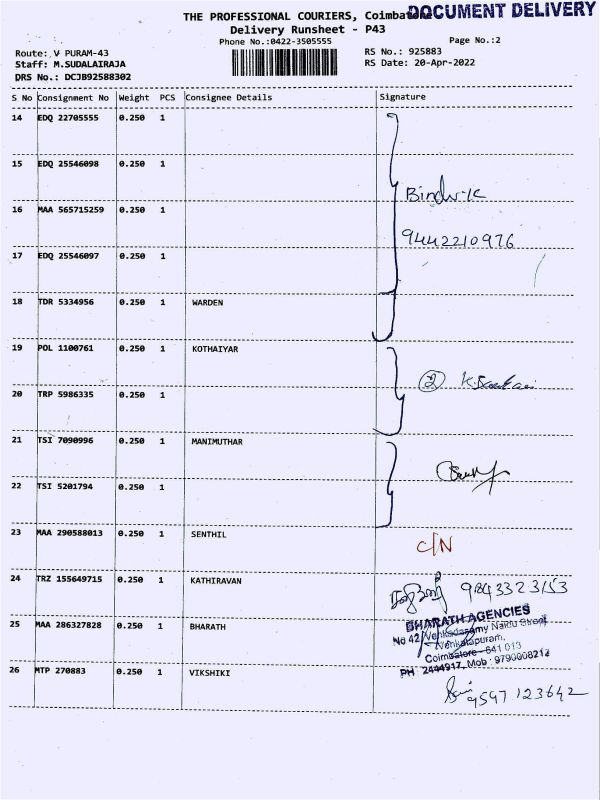 DOCUMENT DELIVERY
THE PROFESSIONAL COURIERS, Coimbatore
Delivery Runsheet - P43
Phone No.:0422-3505555
Page No.:2
Route: V PURAM-43
RS No.: 925883
Staff: M.SUDALAIRAJA
RS Date: 20-Apr-2022
DRS No.: DCJB92588302
S No Consignment No Weight PCS Consignee Details Signature
14 EDQ 22705555 0.250 1
15 EDQ 25546098 0.250 1
Bindu.K
16 MAA 565715259 0.250 1
9442210976
17 EDQ 25546097 0.250 1
18 TDR 5334956 0.250 1 WARDEN
19 POL 1100761 0.250 1 KOTHAIYAR
②
20 TRP 5986335 0.250 1
21 TSI 7090996 0.250 1 MANIMUTHAR
22 TSI 5201794 0.250 1
23 MAA 290588013 0.250 1 SENTHIL C/N
24 TRZ 155649715 0.250 1 KATHIRAVAN 9843323153
25 MAA 286327828 0.250 1 BHARATH
BHARATH AGENCIES
No 42, Venkadasamy Naidu Street
Venkatapuram,
Coimbatore - 641 013
PH : 2444917, Mob : 9790008212
26 MTP 270883 0.250 1 VIKSHIKI
9597 123642